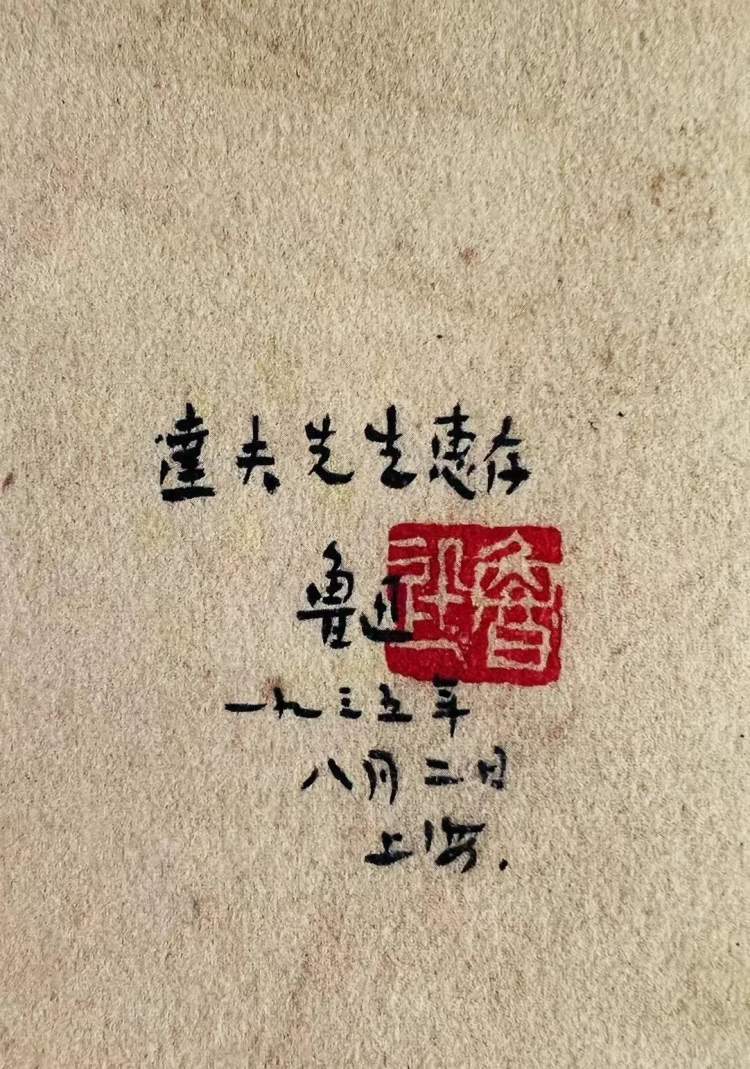 達夫先生惠存
魯迅
一九三五年
八月二日
上海.